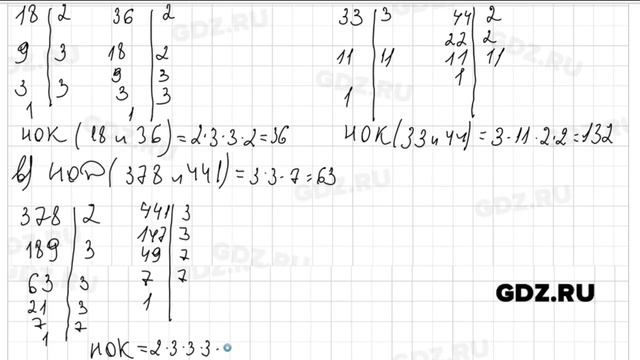 18 | 2
9 | 3
3 | 3
1
36 | 2
18 | 2
9 | 3
3 | 3
1
НОК (18 и 36) = 2·3·3·2=36
33 | 3
11 | 11
1
44 | 2
22 | 2
11 | 11
1
НОК (33 и 44) = 3·11·2·2=132
в) НОД (378 и 441) = 3·3·7=63
378 | 2
189 | 3
63 | 3
21 | 3
7 | 7
1
441 | 3
147 | 3
49 | 7
7 | 7
1
НОК =2·3·3·3·
GDZ.RU